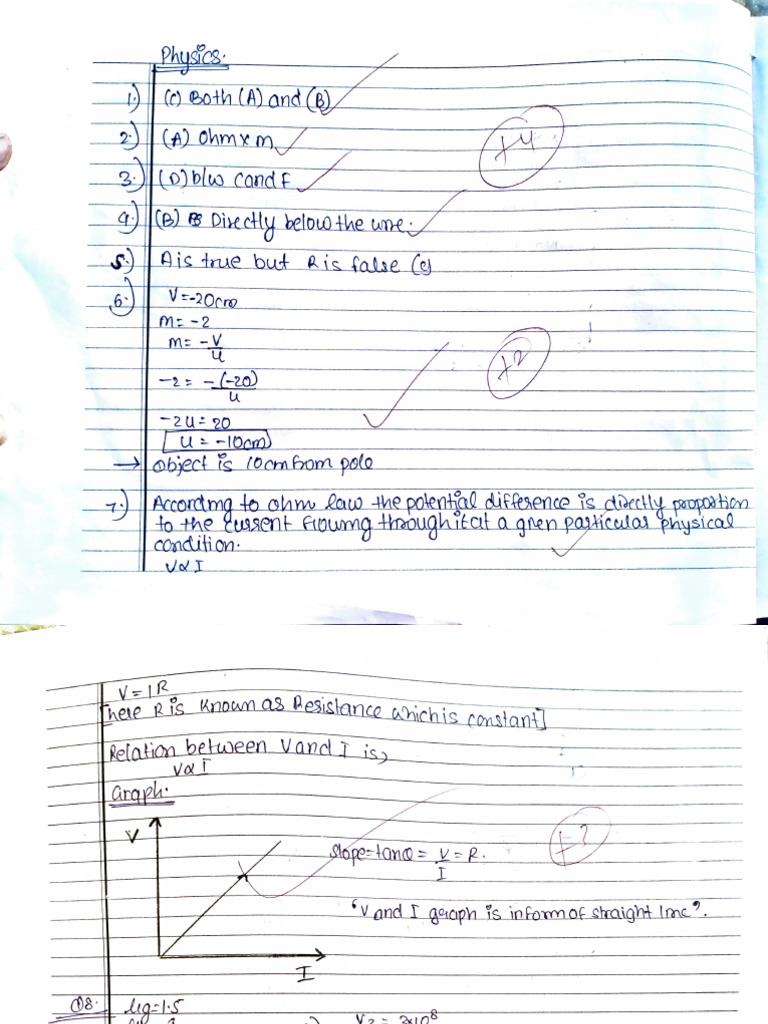 Physics.
1.) (C) Both (A) and (B)
2.) (A) Ohm x m
+4
3.) (D) b/w C and F
4.) (B) Directly below the wire.
5.) A is true but R is false (c)
6.) V=-20cm
m= -2
m= -V/u
+2
-2 = -(-20)/u
-2u = 20
u = -10cm
→ object is 10cm from pole
7.) According to ohm law the potential difference is directly proportion
to the current flowing through it at a given particular physical
condition.
V∝I
V=IR
[here R is known as Resistance which is constant]
Relation between V and I is,
V∝I
Graph.
V
Slope=tanθ = V/I = R.
"V and I graph is in form of straight line".
I
Q8. μg=1.5